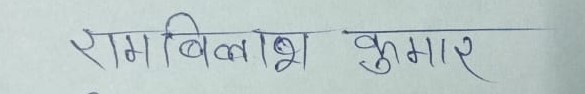 रामबिलाश कुमार